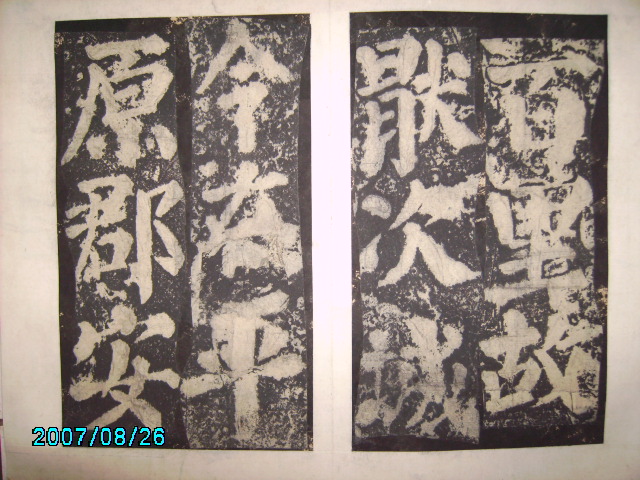 百里故
猒次城
今在平
原郡安
2007/08/26